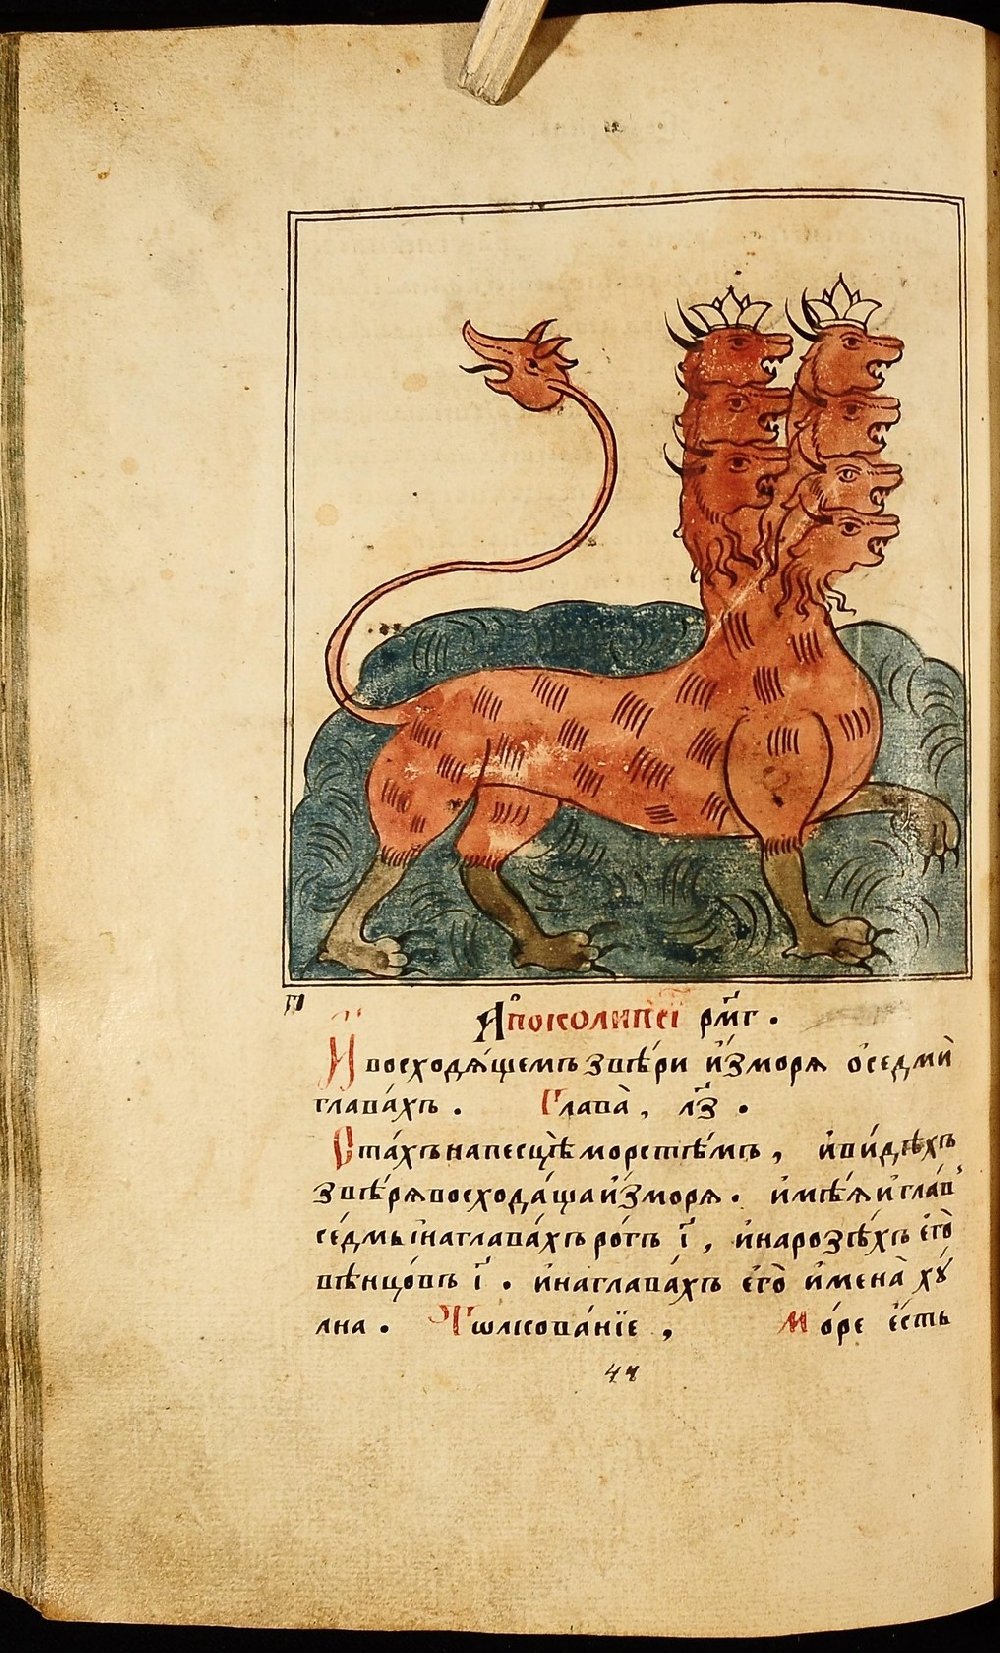 Апоколипсі рмг.
И восходящемъ звѣри из моря о седми
главахъ. Глава, лз.
Стахъ на песцѣ морстѣмъ, и видѣхъ
звѣря восходаща из моря. имѣя и глав
седмь і на главахъ рогъ і, и на розѣхъ его
вѣнцовъ і. и на главахъ его имена ху
лна. Тѡлкованїе, Море есть